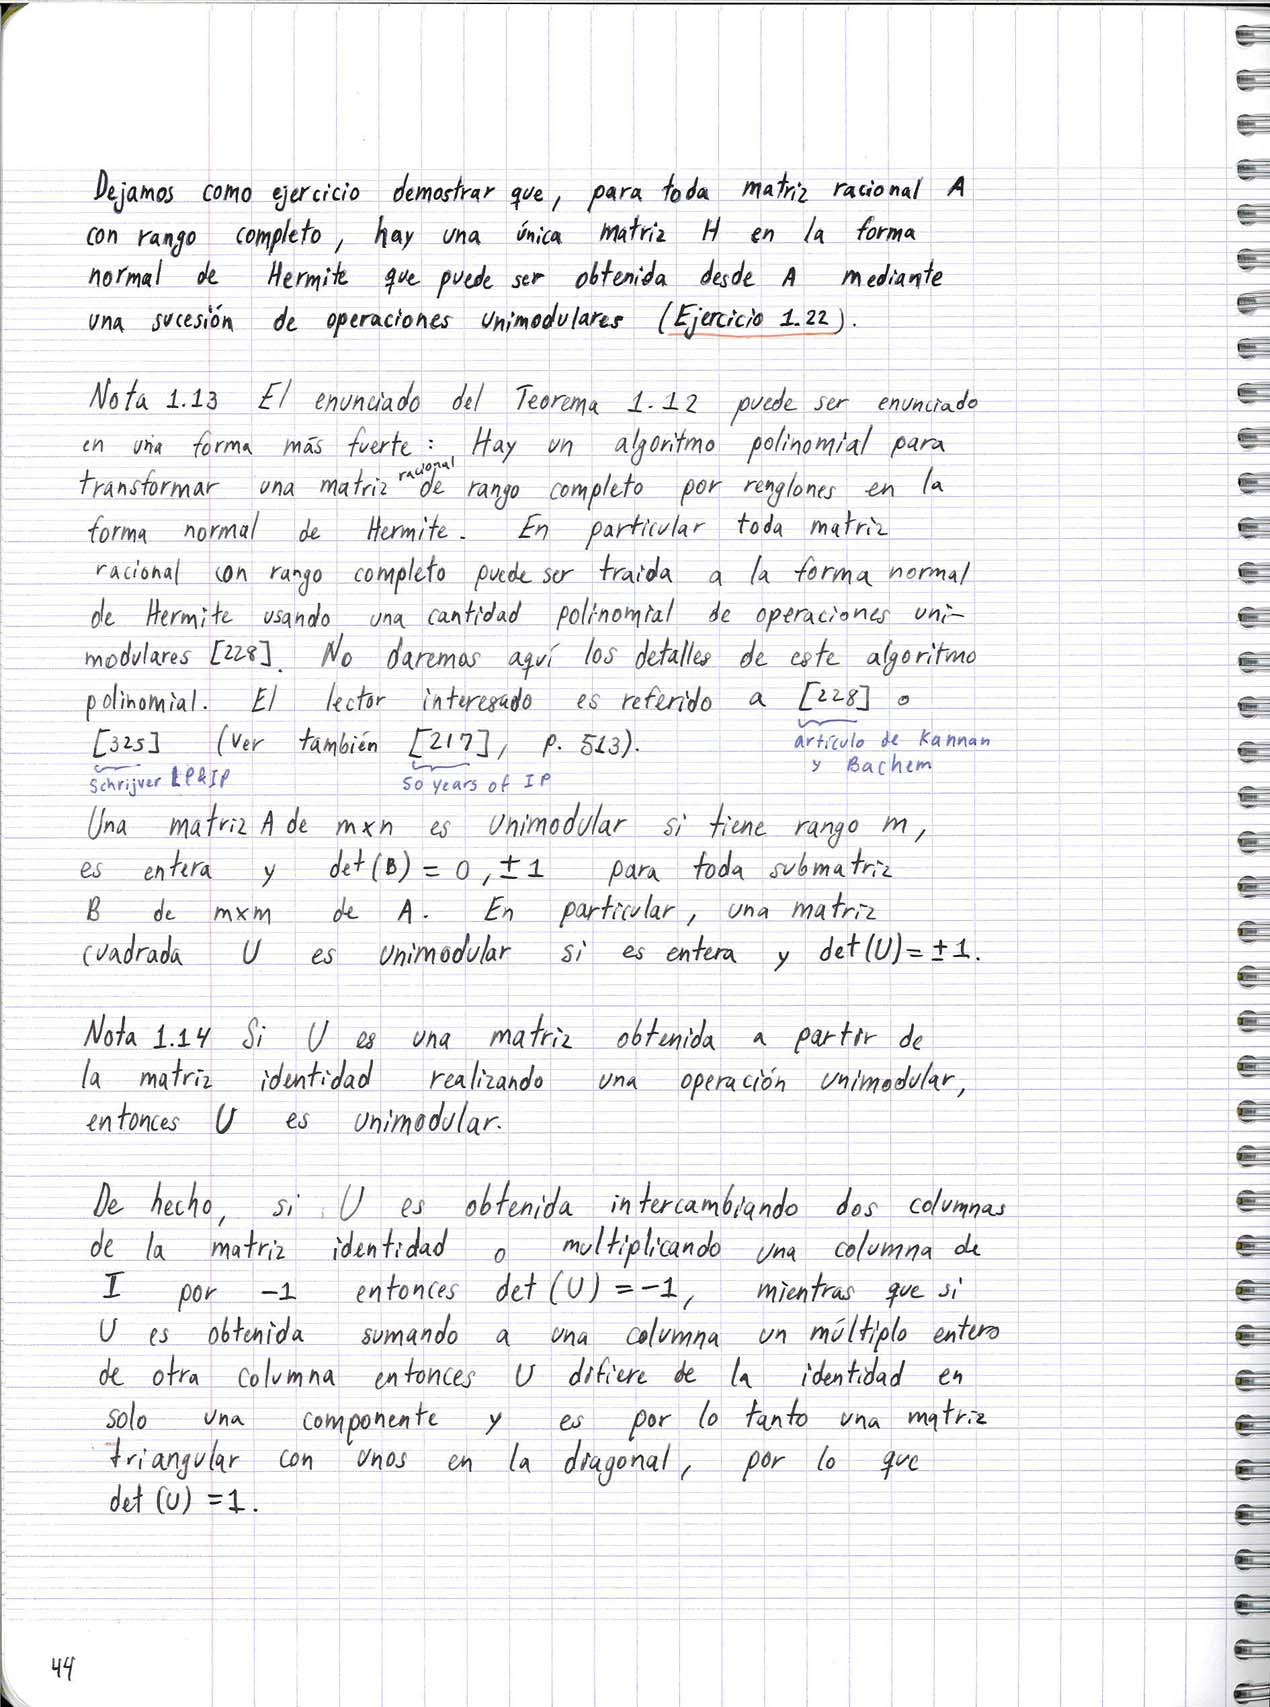 Dejamos como ejercicio demostrar que, para toda matriz racional A
con rango completo, hay una única matriz H en la forma
normal de Hermite que puede ser obtenida desde A mediante
una sucesión de operaciones unimodulares (Ejercicio 1.22).
Nota 1.13 El enunciado del Teorema 1.12 puede ser enunciado
en una forma más fuerte: Hay un algoritmo polinomial para
transformar una matriz racional de rango completo por renglones en la
forma normal de Hermite. En particular toda matriz
racional con rango completo puede ser traida a la forma normal
de Hermite usando una cantidad polinomial de operaciones uni-
modulares [228]. No daremos aquí los detalles de este algoritmo
polinomial. El lector interesado es referido a [228] o
[325] (ver también [217], p. 513).
artículo de Kannan
y Bachem
Schrijver LP&IP
50 years of IP
Una matriz A de m×n es unimodular si tiene rango m,
es entera y det(B) = 0, ±1 para toda submatriz
B de m×m de A. En particular, una matriz
cuadrada U es unimodular si es entera y det(U) = ±1.
Nota 1.14 Si U es una matriz obtenida a partir de
la matriz identidad realizando una operación unimodular,
entonces U es unimodular.
De hecho, si U es obtenida intercambiando dos columnas
de la matriz identidad o multiplicando una columna de
I por -1 entonces det(U) = -1, mientras que si
U es obtenida sumando a una columna un múltiplo entero
de otra columna entonces U difiere de la identidad en
solo una componente y es por lo tanto una matriz
triangular con unos en la diagonal, por lo que
det(U) = 1.
44